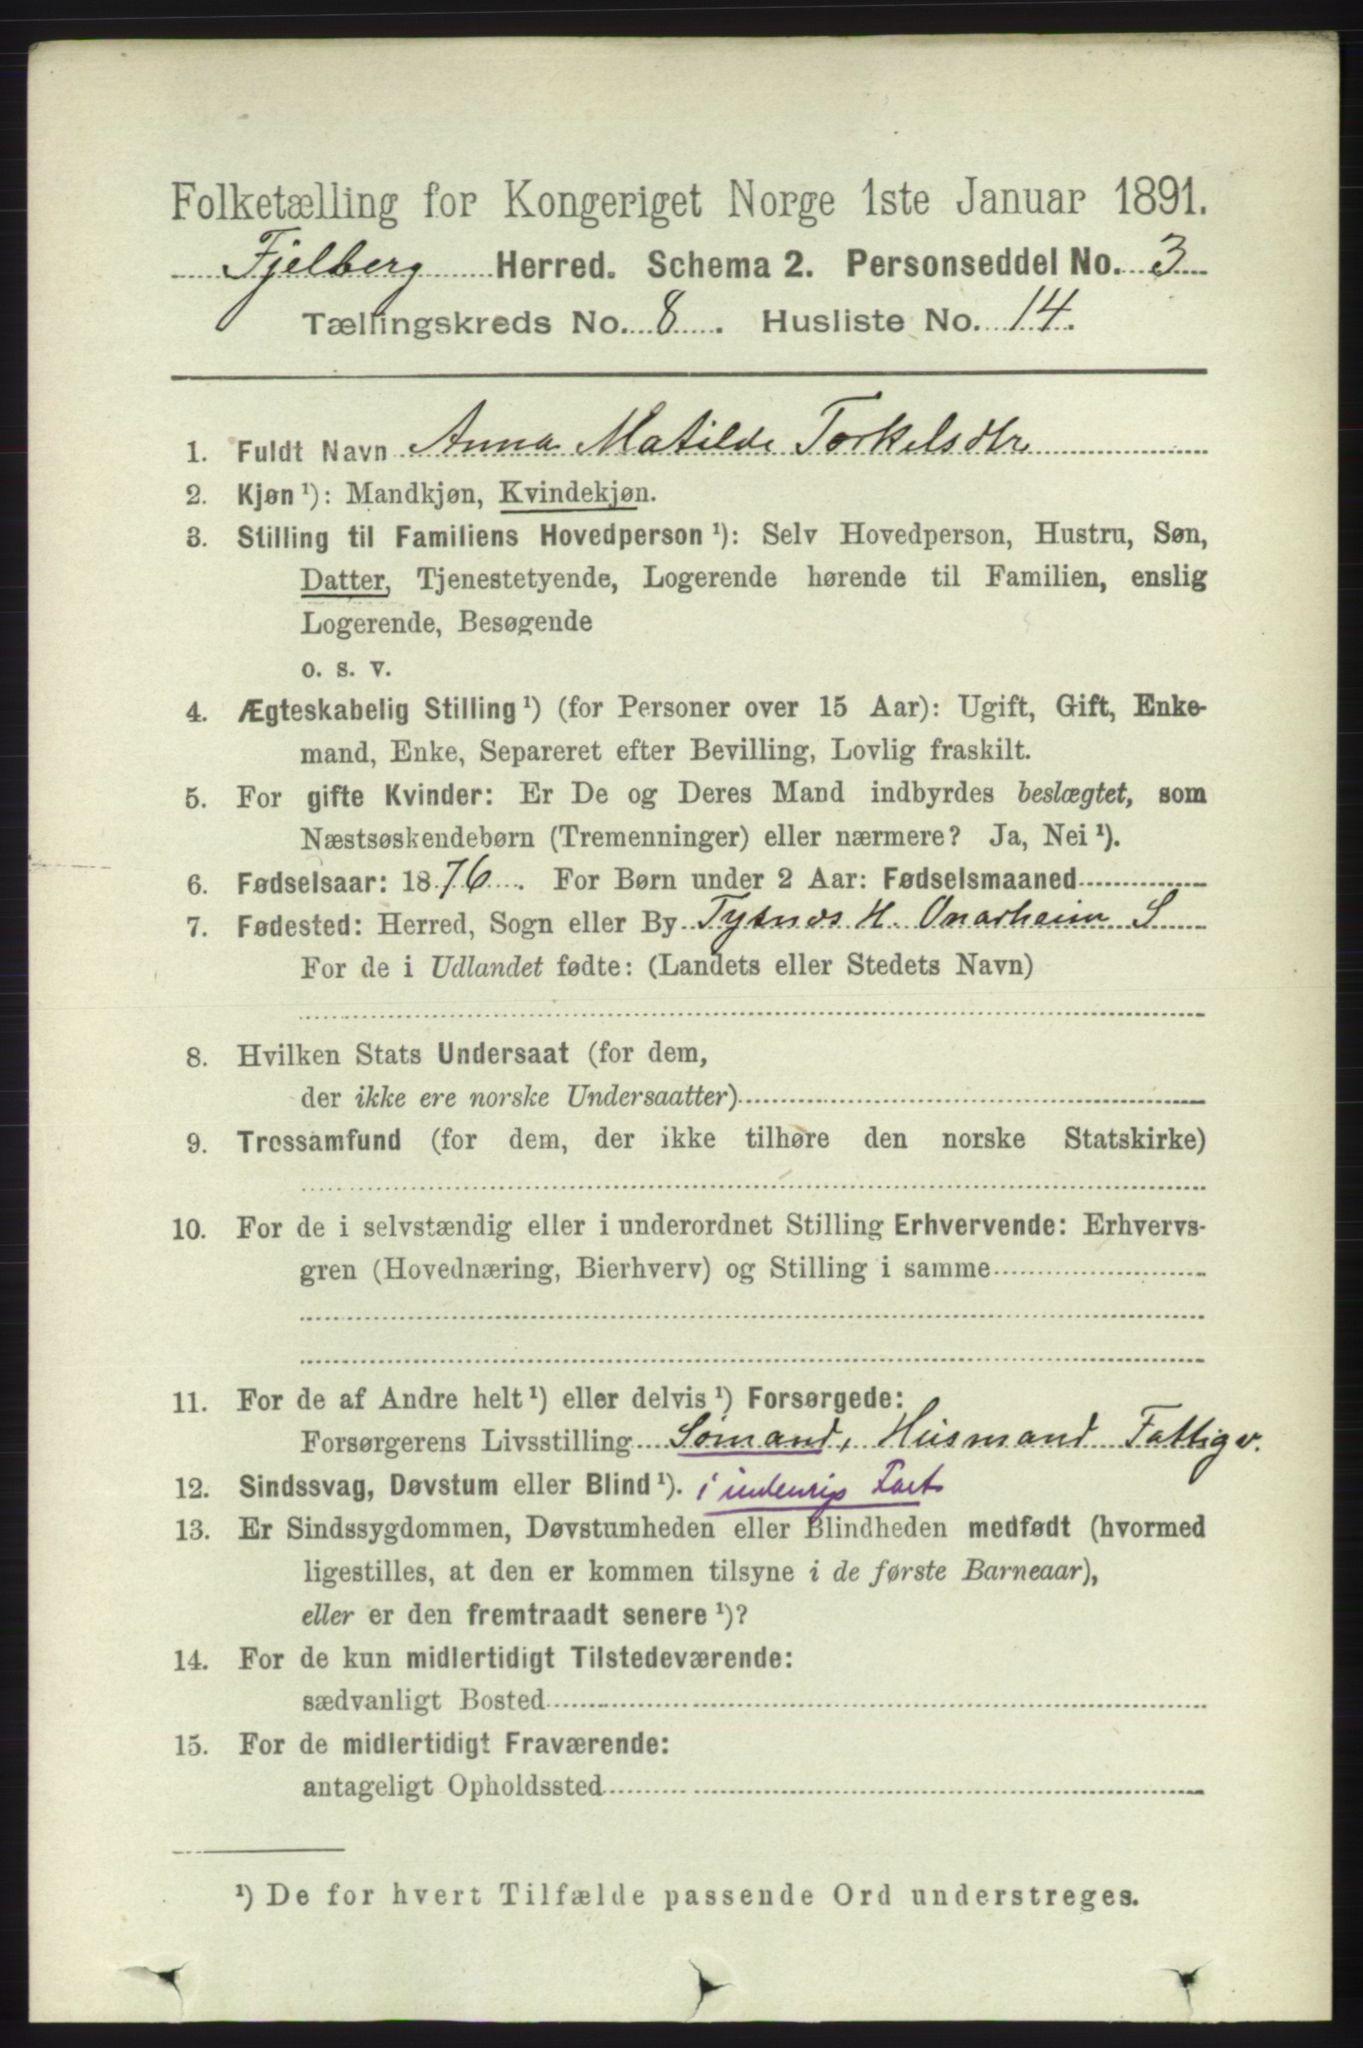 Folketælling for Kongeriget Norge 1ste Januar 1891.
Fjelberg Herred. Schema 2. Personseddel No. 3
Tællingskreds No. 8. Husliste No. 14.
1. Fuldt Navn Anna Matilde Torkelsdtr
2. Kjøn ¹): Mandkjøn, Kvindekjøn.
3. Stilling til Familiens Hovedperson ¹): Selv Hovedperson, Hustru, Søn,
Datter, Tjenestetyende, Logerende hørende til Familien, enslig
Logerende, Besøgende
o. s. v.
4. Ægteskabelig Stilling ¹) (for Personer over 15 Aar): Ugift, Gift, Enke-
mand, Enke, Separeret efter Bevilling, Lovlig fraskilt.
5. For gifte Kvinder: Er De og Deres Mand indbyrdes beslægtet, som
Næstsøskendebørn (Tremenninger) eller nærmere? Ja, Nei ¹).
6. Fødselsaar: 1876. For Børn under 2 Aar: Fødselsmaaned
7. Fødested: Herred, Sogn eller By Tysnes H. Onarheim S
For de i Udlandet fødte: (Landets eller Stedets Navn)
8. Hvilken Stats Undersaat (for dem,
der ikke ere norske Undersaatter)
9. Trossamfund (for dem, der ikke tilhøre den norske Statskirke)
10. For de i selvstændig eller i underordnet Stilling Erhvervende: Erhvervs-
gren (Hovednæring, Bierhverv) og Stilling i samme
11. For de af Andre helt ¹) eller delvis ¹) Forsørgede:
Forsørgerens Livsstilling Sømand, Husmand Fattigv.
12. Sindssvag, Døvstum eller Blind ¹). i indenrigs Fart
13. Er Sindssygdommen, Døvstumheden eller Blindheden medfødt (hvormed
ligestilles, at den er kommen tilsyne i de første Barneaar),
eller er den fremtraadt senere ¹)?
14. For de kun midlertidigt Tilstedeværende:
sædvanligt Bosted
15. For de midlertidigt Fraværende:
antageligt Opholdssted
¹) De for hvert Tilfælde passende Ord understreges.